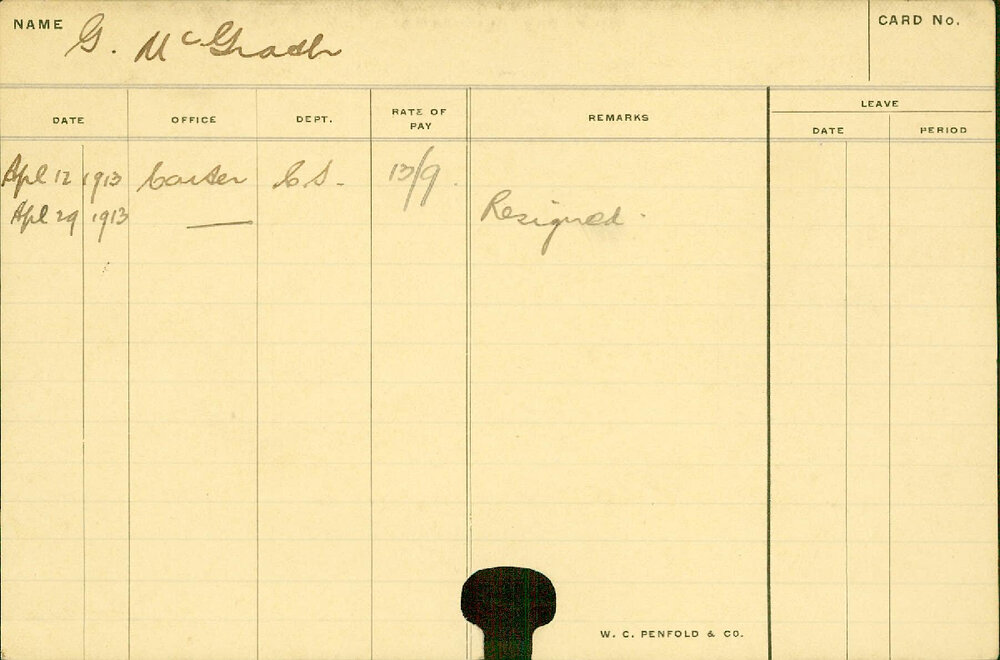 NAME G. McGrath CARD No.
LEAVE
DATE OFFICE DEPT. RATE OF PAY REMARKS DATE PERIOD
Apl 12 1913 Carter C.S. 13/9.
Apl 29 1913 — Resigned.
W. C. PENFOLD & CO.